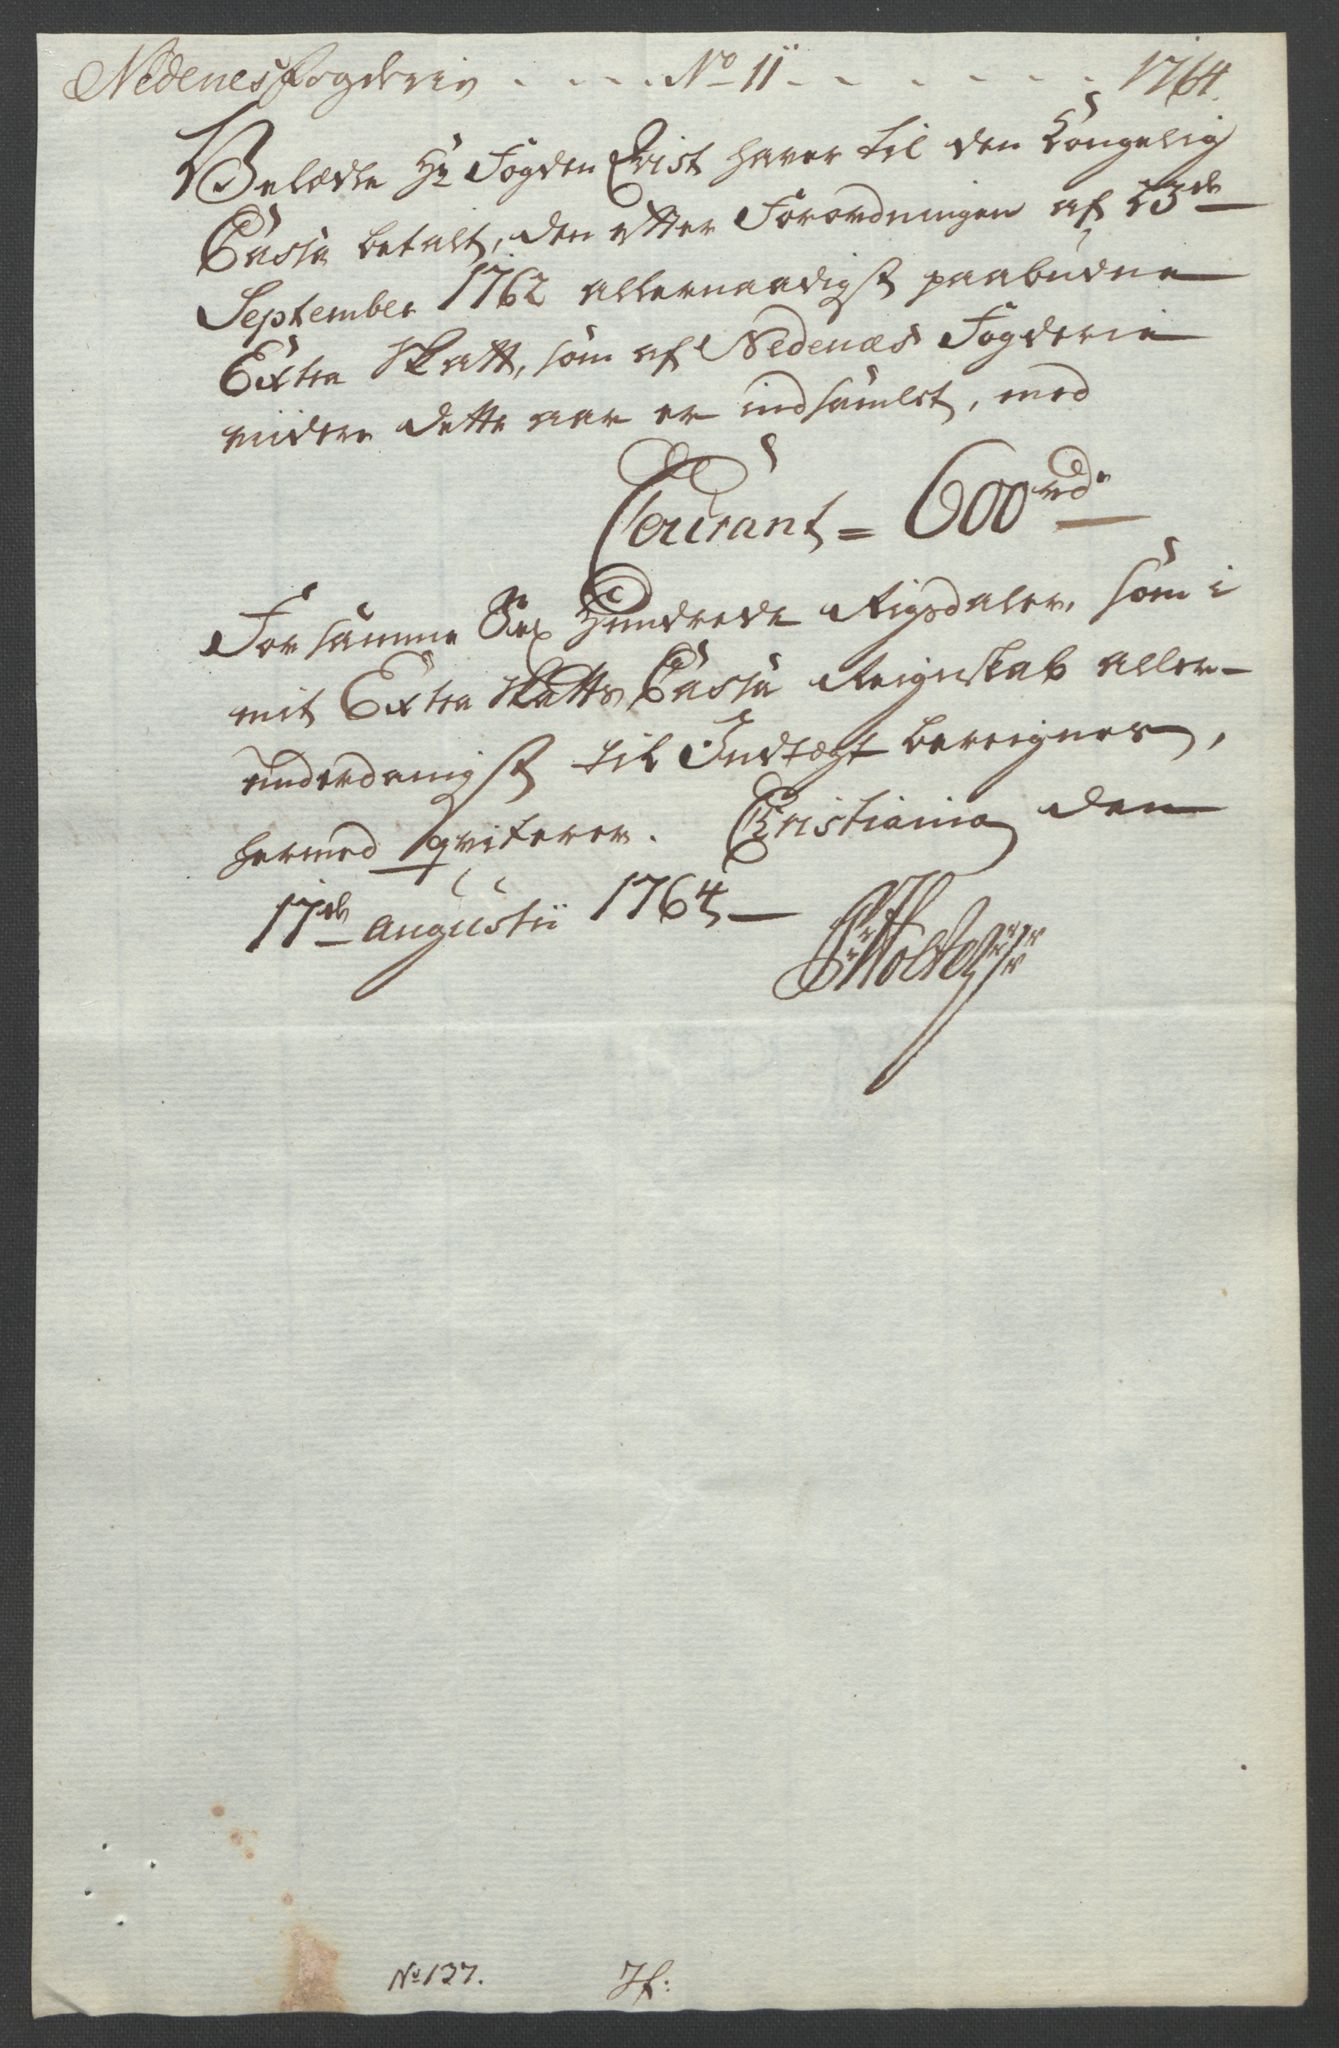 Nedenes fogderie - - - - No 11 - - - - - - 1764.
Velædle Hr Fogden Qvist haver til den Kongelig
Cassa betalt, den efter Forordningen af 23de
September 1762 allernaadigst paabudne
Extra Skatt, som af Nedenæs Fogderie
viidere dette aar er indsamlet, med
Courant = 600 rdr
For samme Sex Hundrede Rigsdaler, som i
mit Extra Skatts Cassa Reignskab aller-
underdanigst til Indtægt bereignes,
hermed qviterer. Christiania den
17de Augustii 1764
Holter
No 127. Hf: